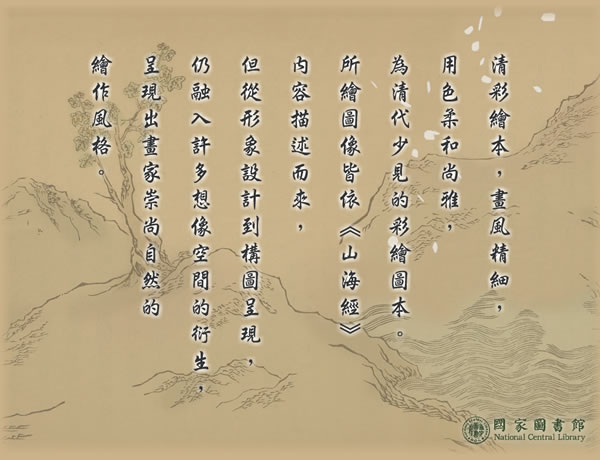 清彩繪本，畫風精細，
用色柔和尚雅，
為清代少見的彩繪圖本。
所繪圖像皆依《山海經》
內容描述而來，
但從形象設計到構圖呈現，
仍融入許多想像空間的衍生，
呈現出畫家崇尚自然的
繪作風格。
國家圖書館
National Central Library